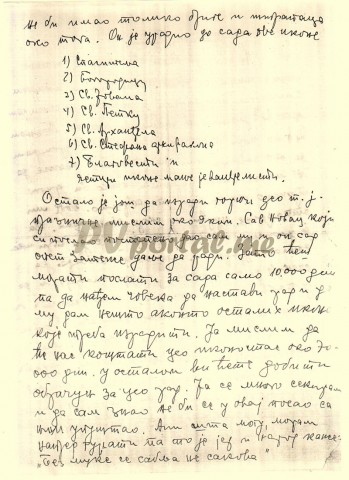 не би имао толико бриге и
око тога. Он је урадио до сада ове иконе
1) Спаситеља
2) Богородицу
3) Св. Јована
4) Св. Петку
5) Св. Архангела
6) Св. Стефана архиђакона
7) Благовести и
четири иконе мање јеванђелисти.
Остало је још да изради горњи део т.ј.
мислим око Сав новац који
си послао сам му и он сад
опет да ради. Зато ћеш
морати послати за сада само 10,000 дин
па да натјем човека да настави рад и
му дам нешто осталих икона
које треба израдити. Ја мислим да
ће нас коштати цео иконостас око 70-
000 дин. у осталом ви ћете добити
обрачун за цео рад. Ја се много секирам
и да сам знао не би се у овај посао са
њим упуштао. Али шта могу, морам
напред гурати па што је јед и народ каже:
„Без муке се сабља не сакова"